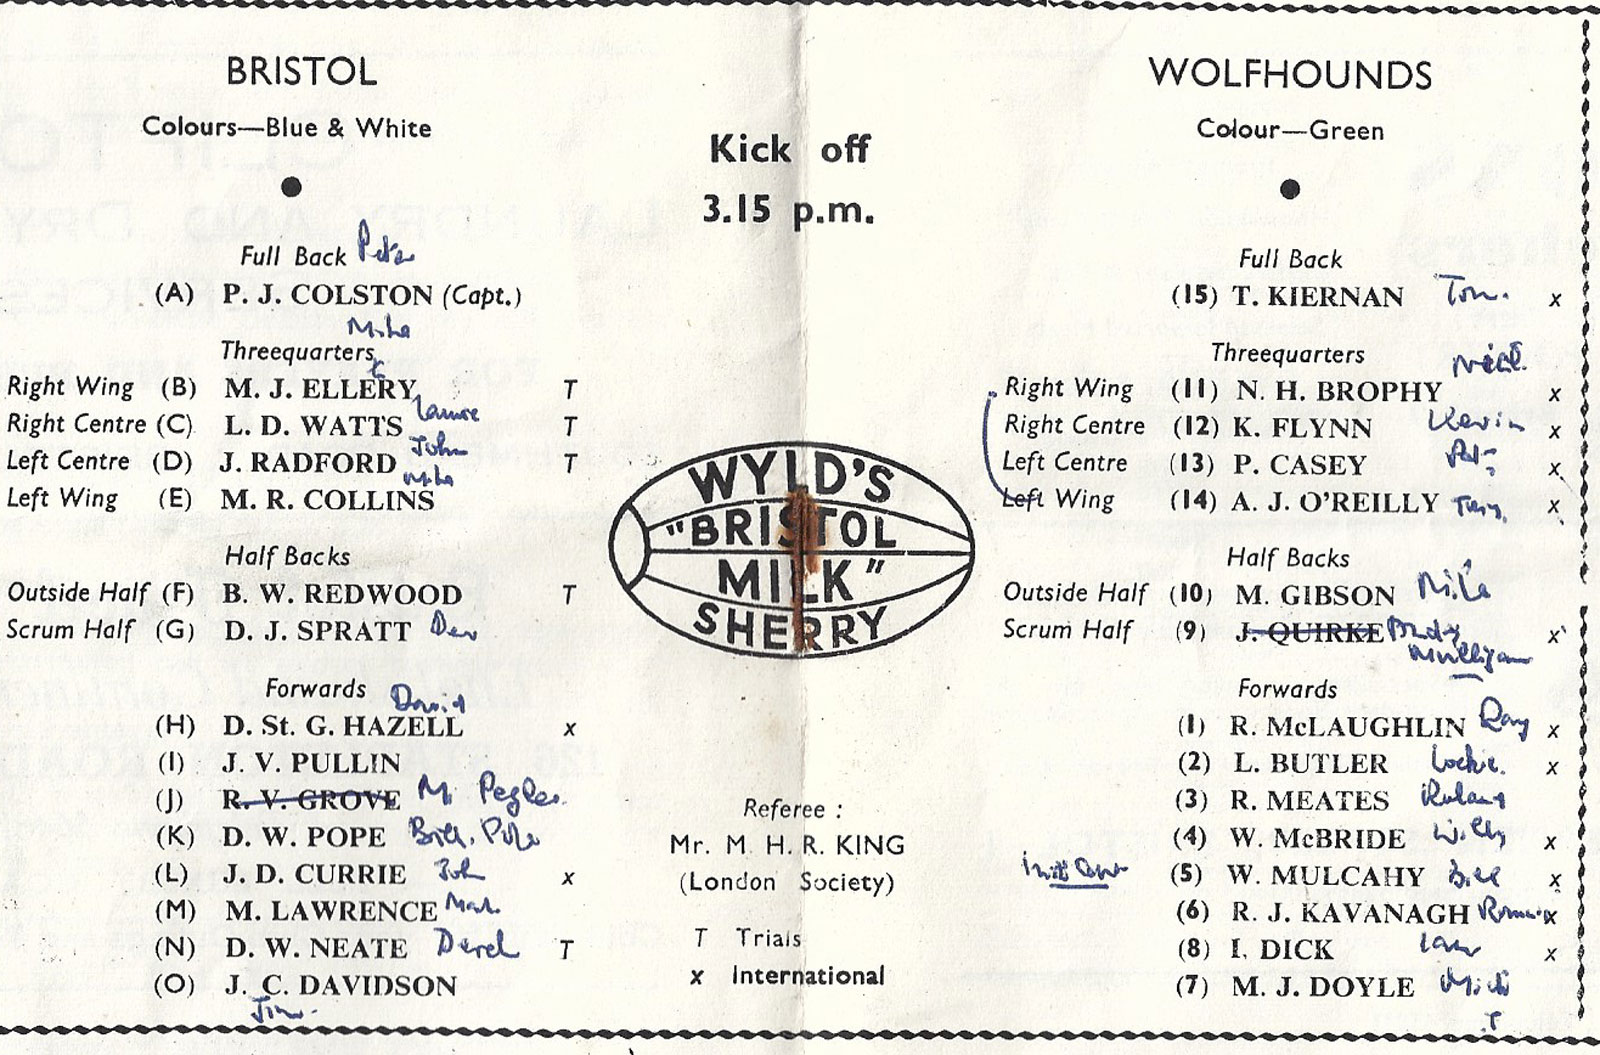 BRISTOL
Colours—Blue & White
Full Back Pete
(A) P. J. COLSTON (Capt.)
Mike
Threequarters
Right Wing (B) M. J. ELLERY T
Right Centre (C) L. D. WATTS Laurie T
Left Centre (D) J. RADFORD John T
Left Wing (E) M. R. COLLINS Mike
Half Backs
Outside Half (F) B. W. REDWOOD T
Scrum Half (G) D. J. SPRATT Dev
Forwards David
(H) D. St. G. HAZELL x
(I) J. V. PULLIN
(J) R. V. GROVE M. Pegler
(K) D. W. POPE Bill. Pope
(L) J. D. CURRIE John x
(M) M. LAWRENCE
(N) D. W. NEATE Derek T
(O) J. C. DAVIDSON
Jim.
Kick off
3.15 p.m.
WYLD'S
"BRISTOL
MILK"
SHERRY
Referee :
Mr. M. H. R. KING
(London Society)
T Trials
x International
WOLFHOUNDS
Colour—Green
Full Back
(15) T. KIERNAN Tom. x
Threequarters
Right Wing (11) N. H. BROPHY x
Right Centre (12) K. FLYNN Kevin x
Left Centre (13) P. CASEY Pat x
Left Wing (14) A. J. O'REILLY Tony x
Half Backs
Outside Half (10) M. GIBSON Mike
Scrum Half (9) J. QUIRKE Andy x
Mulligan
Forwards
(1) R. McLAUGHLIN Ray x
(2) L. BUTLER Lockie. x
(3) R. MEATES Roland
(4) W. McBRIDE Willy x
(5) W. MULCAHY Bill x
(6) R. J. KAVANAGH Ronnie x
(8) I. DICK Ian x
(7) M. J. DOYLE Mick
T